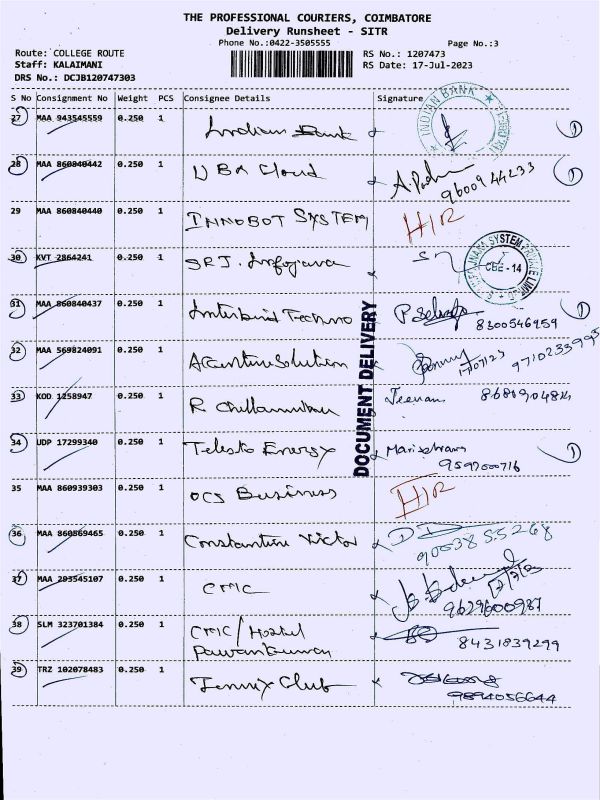 THE PROFESSIONAL COURIERS, COIMBATORE
Delivery Runsheet - SITR
Phone No.:0422-3505555 Page No.:3
Route: COLLEGE ROUTE RS No.: 1207473
Staff: KALAIMANI RS Date: 17-Jul-2023
DRS No.: DCJB120747303
S No Consignment No Weight PCS Consignee Details Signature
27 MAA 943545559 0.250 1 Indian Bank
INDIAN BANK
28 MAA 860840442 0.250 1 UBA Cloud
9600944233
29 MAA 860840440 0.250 1 INNOBOT SYSTEM H/R
30 KVT 2864241 0.250 1 SRJ. Infojava
CBE - 14
31 MAA 860840437 0.250 1 Techno
8300546959
32 MAA 569824091 0.250 1 Accenture Solution
17/07/23 9710233995
33 KOD 1258947 0.250 1 R Jeevan
34 UDP 17299340 0.250 1 Telesto Energy
35 MAA 860939303 0.250 1 OCS Business H/R
36 MAA 860569465 0.250 1 Constantine Victor
9003855268
37 MAA 293545107 0.250 1 CMC
9629600987
38 SLM 323701384 0.250 1 CMC/Hostel
Pawankumar 8431839299
39 TRZ 102078483 0.250 1 Tennix Club
9894056644
DOCUMENT DELIVERY